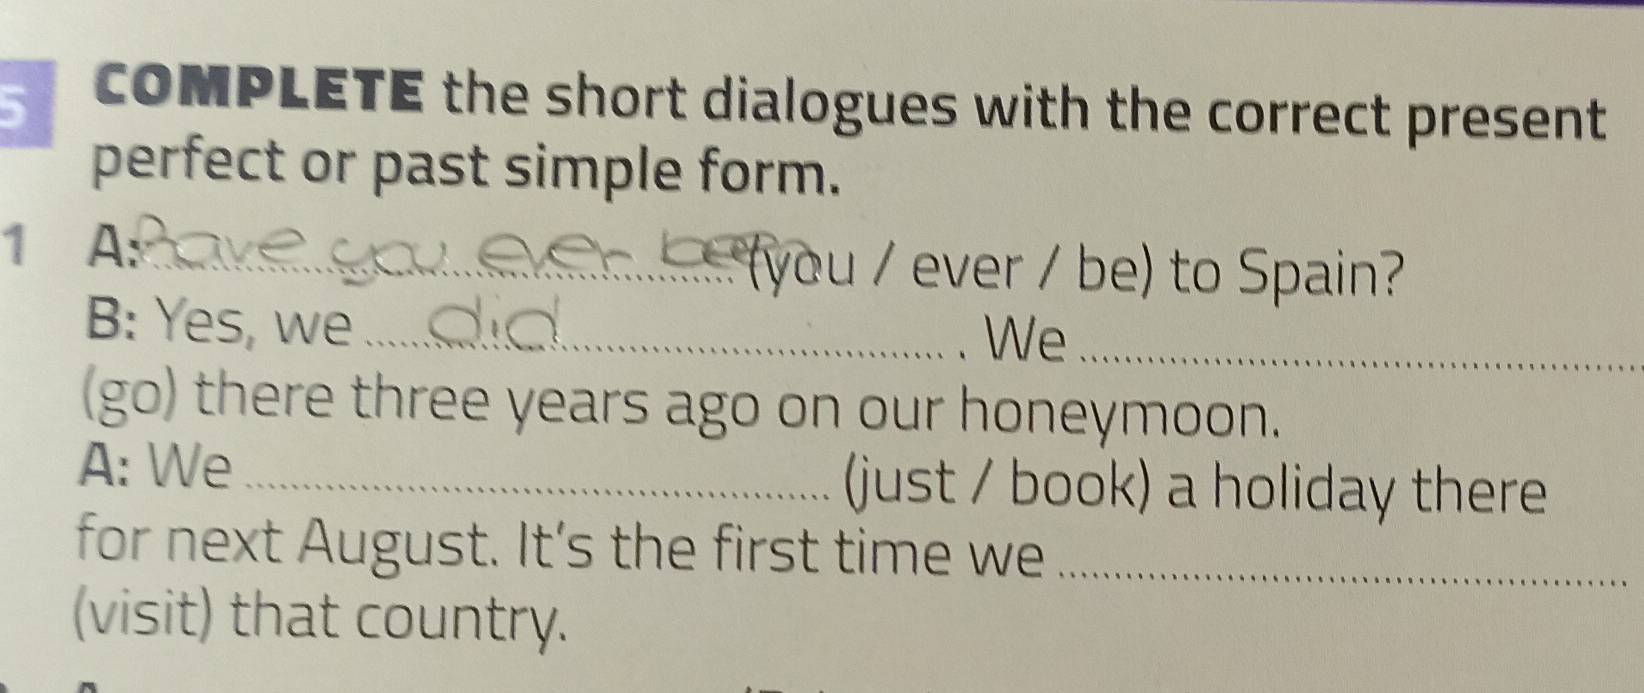 5 COMPLETE the short dialogues with the correct present
perfect or past simple form.
1 A: have you ever been (you / ever / be) to Spain?
B: Yes, we ... did ... . We ...
(go) there three years ago on our honeymoon.
A: We ... (just / book) a holiday there
for next August. It's the first time we ...
(visit) that country.